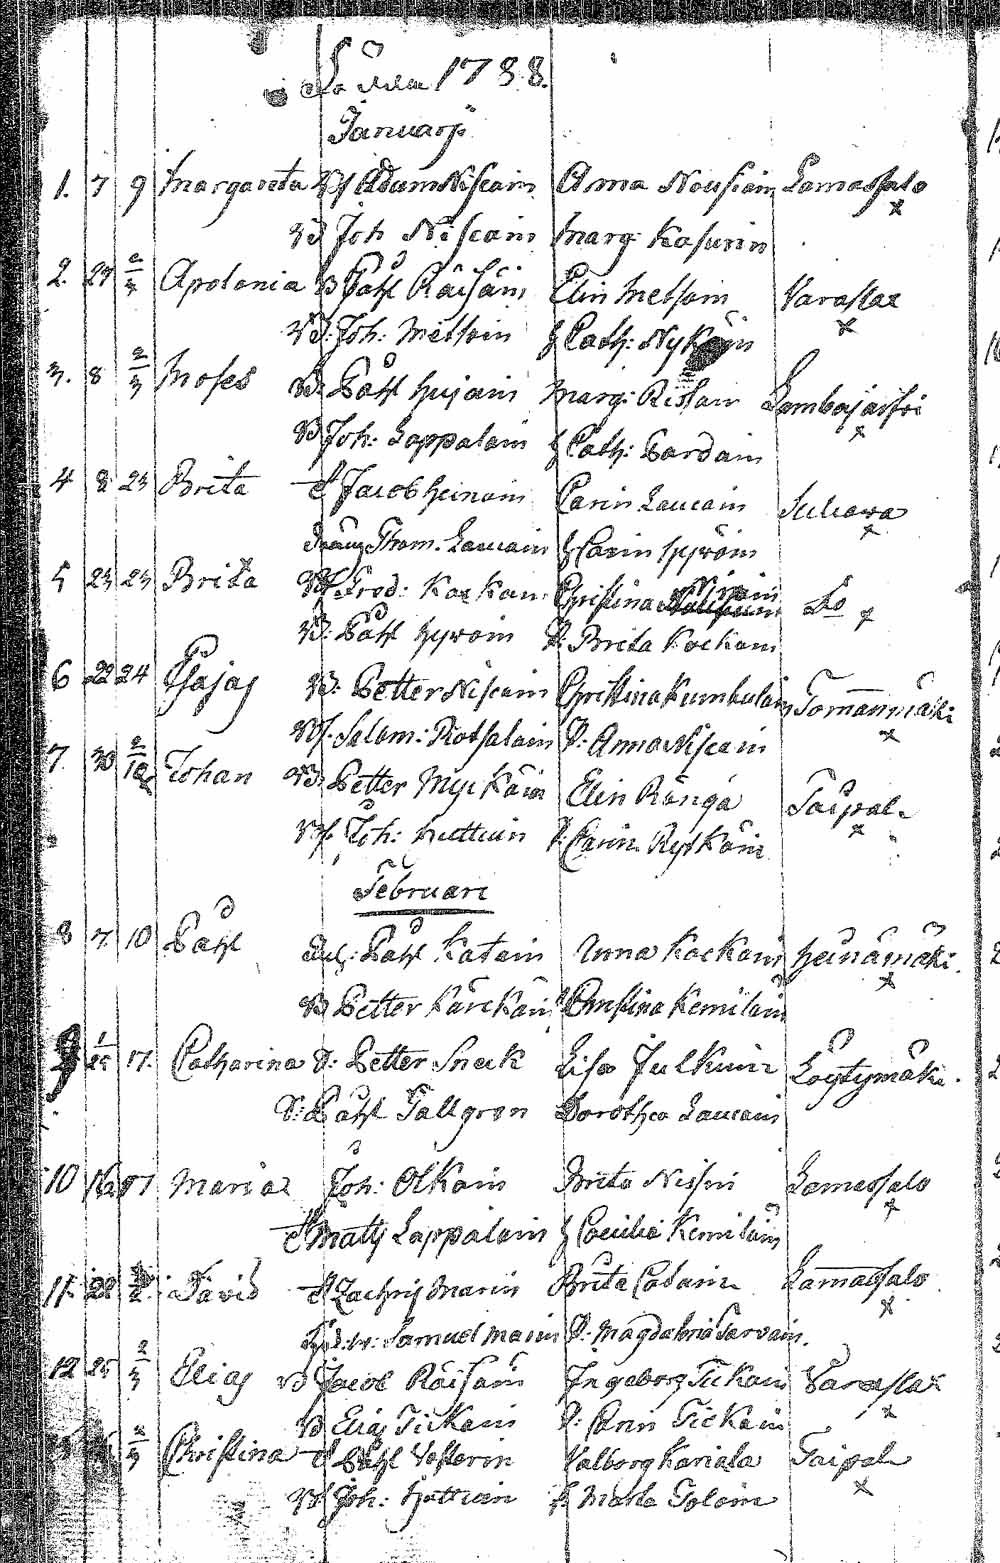 1788.
Januarij
1. 7 9 Margareta Adam Niskain Anna Nousiain Lamassalo x
Joh Niskain Marg: Kosunin
2. 27 2/3 Apolonia Påhl Räisäin Elin Metsoin Varaslax x
Joh: Metsoin Cath: Nykäin
3. 8 2/3 Moses Påhl Hujain Marg: Rissain Lambajärfvi x
Joh: Lappalain Cath: Pardain
4 8 23 Brita Jacob Heinoin Carin Laucain Suliawa x
Thom. Laucain Carin Hyvöin
5 23 23 Brita Fred: Kaskain Christina Do x
Påhl Hyvoin Brita Kockoin
6 22 24 Esajas Petter Niskain Christina Kumbulain Tomanmäki x
Salom: Rotsalain Anna Niskain
7. 30 2/10 Johan Petter Mykkäin Elin Rångå Taipale x
Joh: Huttuin Carin Rytkäin
Februari
8 7 10 Påhl Påhl Katain Anna Kockoin Heinämäki. x
Petter Kärckäin Christina Kemiläin
9 1/25 17. Catharina Petter Sneck Lisa Julkuin Löytymäki.
Påhl Tallgren Dorothea Laucain
10 17 Maria Joh: Olkoin Brita Nissin Lamassalo x
Matts Lappalain Caecilia Kemiläin
11. 22 David Zachrij Manin Brita Lamassalo x
Samuel Manin Magdalena Tarvain
12 25 2/3 Elias Jacob Räisäin Ingeborg Tickain Varaslax x
Elias Tickain Carin Tickain
2/3 Christina Påhl Vesterin Valborg Kariala Taipale x
Joh: Huttuin Marta Toloin